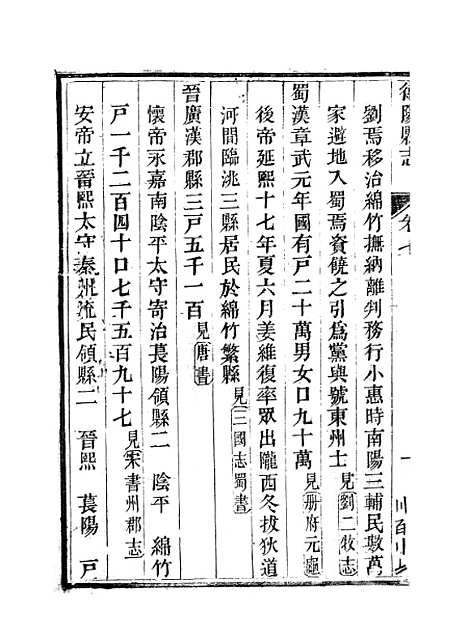 劉焉移治綿竹撫納離判務行小惠時南陽三輔民數萬
家避地入蜀焉資饒之引爲黨與號東州士見劉二牧志
蜀漢章武元年國有戸二十萬男女口九十萬見册府元龜
後帝延熙十七年夏六月姜維復率眾出隴西冬拔狄道
河間臨洮三縣居民於綿竹繁縣見三國志蜀書
晉廣漢郡縣三戸五千一百見唐書
懷帝永嘉南陰平太守寄治萇陽領縣二 陰平 綿竹
戸一千二百四十口七千五百九十七見宋書州郡志
安帝立晉熙太守秦州流民領縣二 晉熙 萇陽 戸